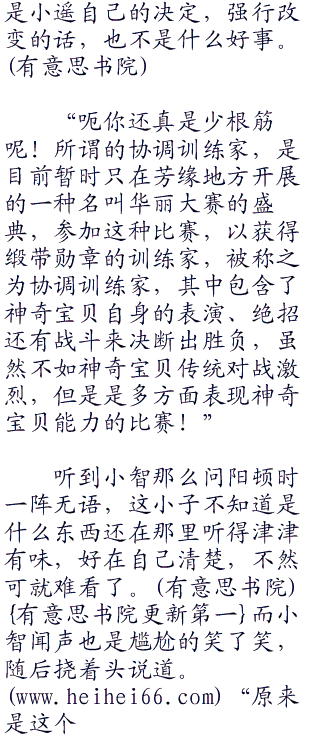 是小遥自己的决定，强行改
变的话，也不是什么好事。
(有意思书院)
“呃你还真是少根筋
呢！所谓的协调训练家，是
目前暂时只在芳缘地方开展
的一种名叫华丽大赛的盛
典，参加这种比赛，以获得
缎带勋章的训练家，被称之
为协调训练家，其中包含了
神奇宝贝自身的表演、绝招
还有战斗来决断出胜负，虽
然不如神奇宝贝传统对战激
烈，但是是多方面表现神奇
宝贝能力的比赛！”
听到小智那么问阳顿时
一阵无语，这小子不知道是
什么东西还在那里听得津津
有味，好在自己清楚，不然
可就难看了。(有意思书院)
{有意思书院更新第一}而小
智闻声也是尴尬的笑了笑，
随后挠着头说道。
(www.heihei66.com)“原来
是这个